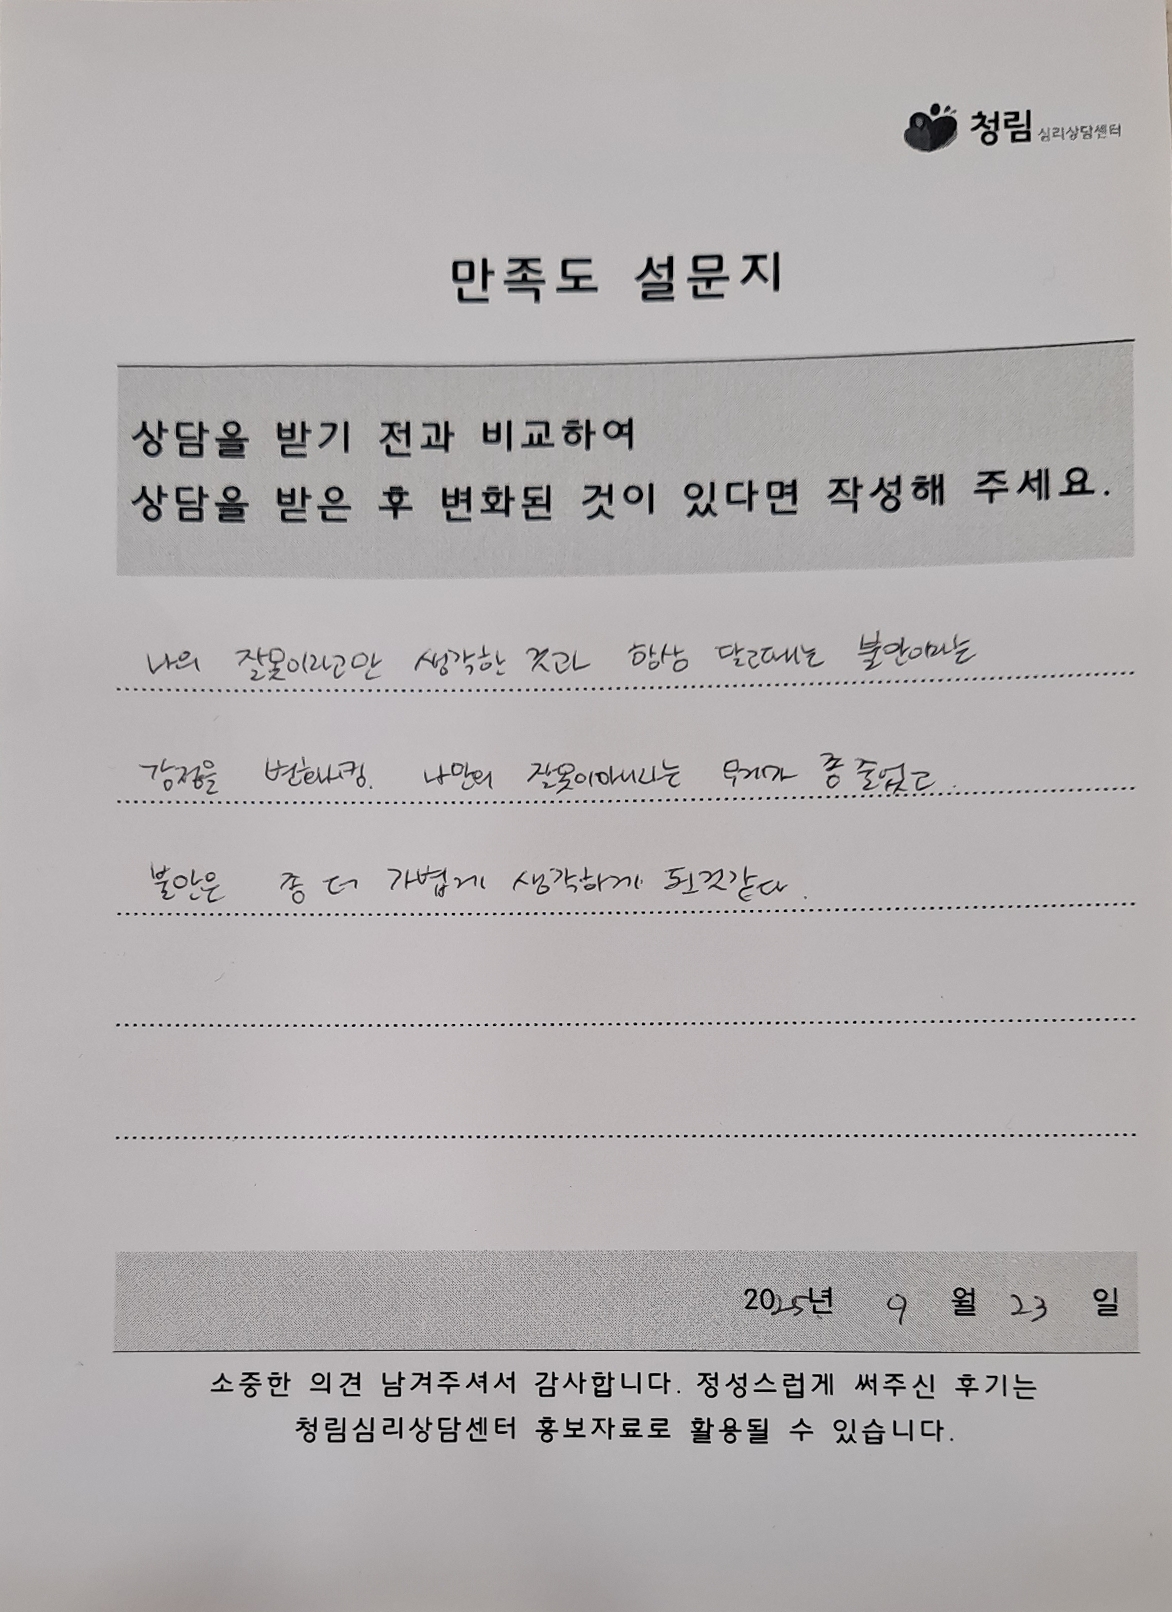 청림 심리상담센터
만족도 설문지
상담을 받기 전과 비교하여
상담을 받은 후 변화된 것이 있다면 작성해 주세요.
나의 잘못이라고만 생각한 것과 항상 달고사는 불안이라는
감정을 변화시킴. 나만의 잘못이아니라는 무게가 좀 줄었고.
불안은 좀 더 가볍게 생각하게 된것같다.
2025년 9월 23일
소중한 의견 남겨주셔서 감사합니다. 정성스럽게 써주신 후기는
청림심리상담센터 홍보자료로 활용될 수 있습니다.